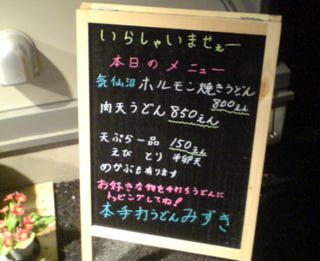 いらしゃいませぇー
本日のメニュー
気仙沼ホルモン焼きうどん
800えん
肉天うどん850えん
天ぷら一品 150えん
えび とり 半卵天
めかぶも有ります
お好きな物を手打ちうどんに
トッピングしてね!
本手打うどんみずき